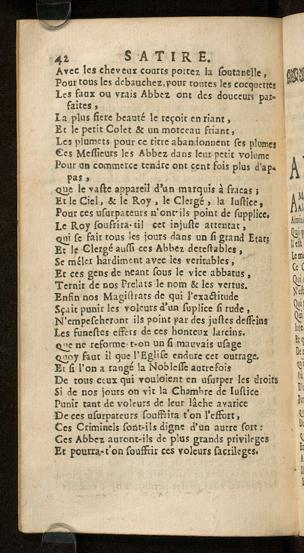 42 SATIRE.
Avec les cheveux courts portez la soutanelle,
Pour tous les debauchez, pour toutes les cocquettes
Les faux ou vrais Abbez ont des douceurs par-
faites,
La plus fiere beauté le reçoit en riant,
Et le petit Colet & un morceau friant,
Les plumets pour ce titre abandonnent ses plumes
Ces Messieurs les Abbez dans leur petit volume
Pour un commerce tendre ont cent fois plus d'ap-
pas,
Que le vaste appareil d'un marquis à fracas;
Et le Ciel, & le Roy, le Clergé, la Iustice,
Pour ces usurpateurs n'ont-ils point de supplice.
Le Roy souffrira-til cet injuste attentat,
Qui se fait tous les jours dans un si grand Etat;
Et le Clergé aussi ces Abbez detestables,
Se méler hardiment avec les veritables,
Et ces gens de neant sous le vice abbatus,
Ternir de nos Prelats le nom & les vertus.
Enfin nos Magistrats de qui l'exactitude
Sçait punir les voleurs d'un suplice si rude,
N'empescheront ils point par des justes desseins
Les funestes effets de ces honteux larcins.
Que ne reforme-t-on un si mauvais usage
Quoy faut il que l'Eglise endure cet outrage.
Et si l'on a rangé la Noblesse autrefois
De tous ceux qui vouloient en usurper les droits
Si de nos jours on vit la Chambre de Iustice
Punir tant de voleurs de leur lâche avarice
De ces usurpateurs souffrira t'on l'effort,
Ces Criminels sont-ils digne d'un autre sort:
Ces Abbez auront-ils de plus grands privileges
Et pourra-t'on souffrir ces voleurs sacrileges.